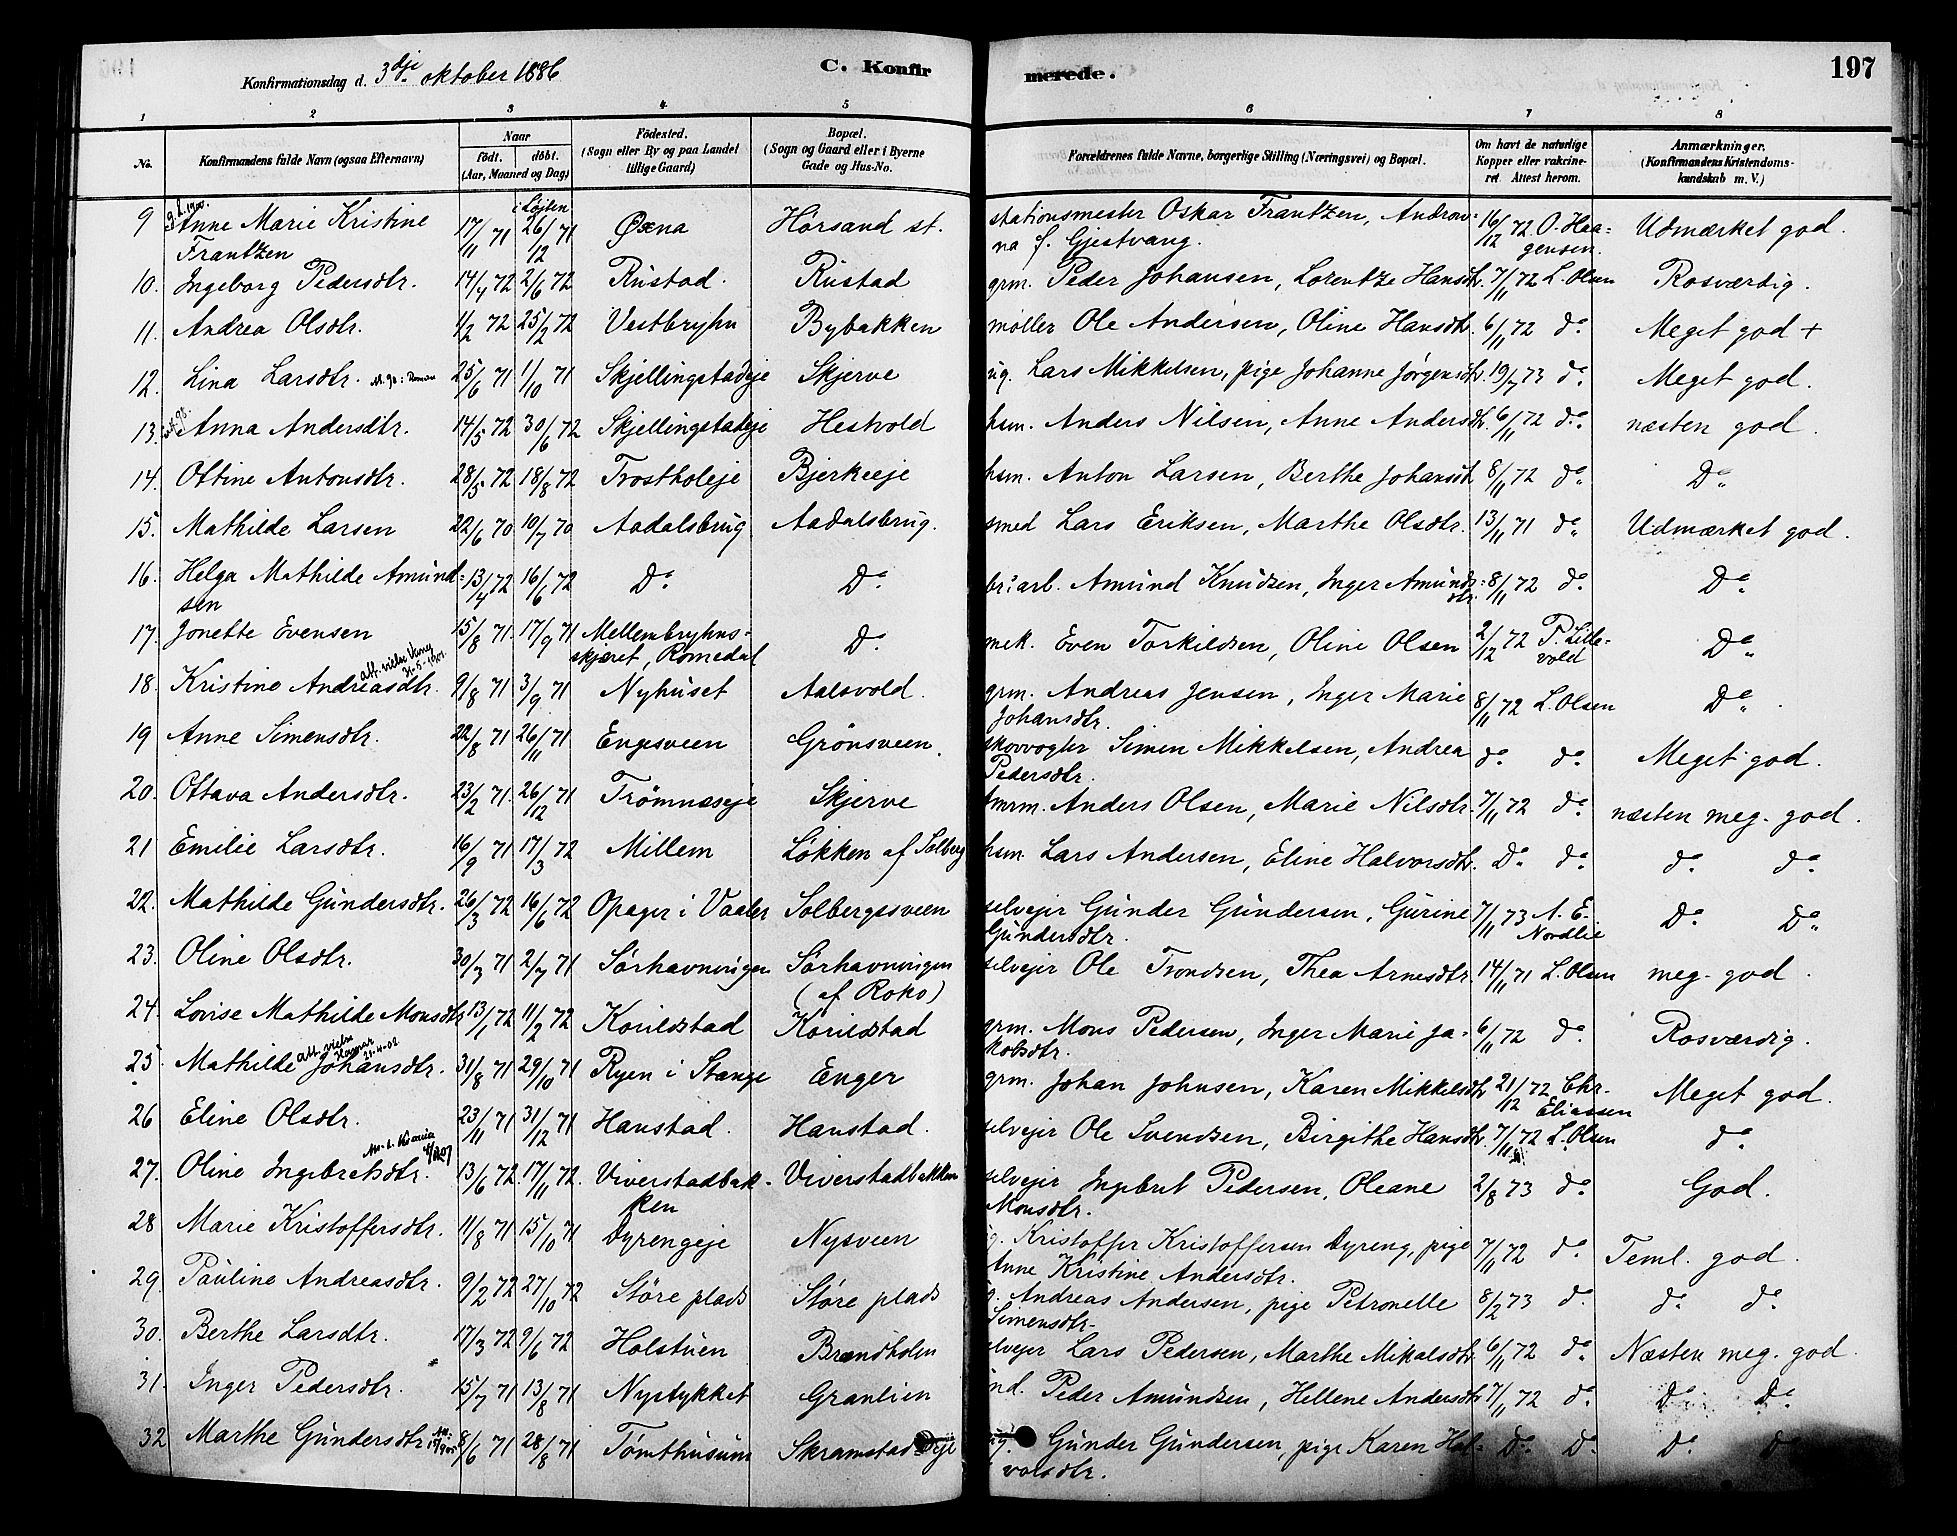 Konfirmationsdag d. 3dje oktober 1886 C. Konfirmerede. 197
1 2 3 4 5 6 7 8
No. Konfirmandens fulde Navn (ogsaa Efternavn) Naar født. døbt. (Aar, Maaned og Dag) Fødested. (Sogn eller By og paa Landet tillige Gaard) Bopæl. (Sogn og Gaard eller i Byerne Gade og Hus-No. Forældrenes fulde Navne, borgerlige Stilling (Næringsvei) og Bopæl. Om havt de naturlige Kopper eller vakcineret. Attest herom. Anmærkninger. (Konfirmandens Kristendomskundskab m. V.)
9 Anne Marie Kristine Frantzen 17/11 71 i Løjten 26/12 71 Øxna Hørsand st. stationsmester Oskar Frantzen, Andrauna f. Gjestvang. 16/12 72 O. Haagensen. Udmærket god.
10. Ingeborg Pedersdtr. 14/4 72 2/6 72 Rustad. Rustad grm. Peder Johansen, Lorentze Hansdtr. 7/11 72 L. Olsen Rosværdig.
11. Andrea Olsdtr. 1/2 72 25/2 72 Vestbryhn Bybakken møller Ole Andersen, Oline Hansdtr. 6/11 72 do. Meget god +
12. Lina Larsdtr. 25/6 71 1/10 71 Skjellingstadeje Skjerve ug. Lars Mikkelsen, pige Johanne Jørgensdtr. 19/7 73 do. Meget god.
13. Anna Andersdtr. 14/5 72 30/6 72 Skjellingstadeje Hestvold hsm. Anders Nilsen, Anne Andersdtr. 6/11 72 do. næsten god.
14. Ottine Antonsdtr. 28/5 72 18/8 72 Trostholeje Bjerkeeje hsm. Anton Larsen, Berthe Johansdtr. 8/11 72 do. Do.
15. Mathilde Larsen 22/6 70 10/7 70 Aadalsbrug Aadalsbrug. smed Lars Eriksen, Marthe Olsdtr. 13/11 71 do. Udmærket god.
16. Helga Mathilde Amundsen 13/4 72 16/6 72 Do. Do. br: arb. Amund Knudsen, Inger Amundsdtr. 8/11 72 do. Do.
17. Jonette Evensen 15/8 71. 17/9 71 Mellembryhnsskjæret, Romedal Do. mek. Even Torkildsen, Oline Olsen 2/12 72 P. Lillevold Do.
18. Kristine Andreasdtr. att. vielse Vang 9/8 71 3/9 71 Nyhuset Aalsvold. grm. Andreas Jensen, Inger Marie Johansdtr. 8/11 72 L. Olsen Do.
19 Anne Simensdtr. 22/8 71 26/11 71 Engesveen Grønsveen. skovvogter Simen Mikkelsen, Andrea Pedersdtr. do. do. Meget god.
20. Ottava Andersdtr. 23/2 71. 26/12 71 Trømnæseje Skjerve tmrm. Anders Olsen, Marie Nilsdtr. 7/11 72 do. næsten meg. god.
21 Emilie Larsdtr. 16/9 71 17/3 72 Millem Løkken af Solberg hsm. Lars Andersen, Eline Halvorsdtr. Do. do. do. do.
22. Mathilde Gundersdtr. 26/3 72 16/6 72 Opager i Vaaler Solbergsveen selvejer Gunder Gundersen, Gurine Gundersdtr. 7/11 73 A. E. Nordlie Do. Do.
23. Oline Olsdtr. 30/3 71 2/7 71 Sørhavningen Sørhavningen (af Roko) selvejer Ole Trondsen, Thea Arnesdtr. 14/11 71 L. Olsen meg. god.
24. Lovise Mathilde Monsdtr. 13/1 72 11/2 72 Korildstad Korildstad grm. Mons Pedersen, Inger Marie Jakobsdtr. 6/11 72 do. Rosværdig.
25. Mathilde Johansdtr. att. vielse Hamar 21-4-02 31/8 71 29/10 71 Ryen i Stange Enger grm. Johan Johnsen, Karen Mikkelsdtr. 21/12 72 Chr. Eliassen Meget god.
26 Eline Olsdtr. 23/11 71 31/12 71 Hanstad. Hanstad. selvejer Ole Svendsen, Birgithe Hansdtr. 7/11 72 L. Olsen do.
27. Oline Ingebretsdtr. 13/6 72. 17/11 72. Viverstadbakken Viverstadbakken selvejer Ingebret Pedersen, Oleane Monsdtr. 2/8 73 do. God.
28 Marie Kristoffersdtr. 11/8 71 15/10 71 Dyrengeje Nysveen g. Kristoffer Kristoffersen Dyreng, pige Anne Kristine Andersdtr. 7/11 72 do. Teml. god.
29. Pauline Andreasdtr. 9/2 72 27/10 72 Støre plads Støre plads g. Andreas Andersen, pige Petronelle Simensdtr. 8/2 73 do. do. do.
30. Berthe Larsdtr. 17/3 72 9/6 72 Holstuen Brændholen selvejer Lars Pedersen, Marthe Mikalsdtr. 6/11 72 do. Næsten meg. god.
31. Inger Pedersdtr. 15/7 71 13/8 71 Nystykket Granlien ind. Peder Amundsen, Hellene Andersdtr. 7/11 72 do. Do. Do.
32 Marthe Gundersdtr. 8/6 71 28/8 71 Tømthusum Skramstadeje ug. Gunder Gundersen, pige Karen Halvorsdtr. Do. D. Do. Do